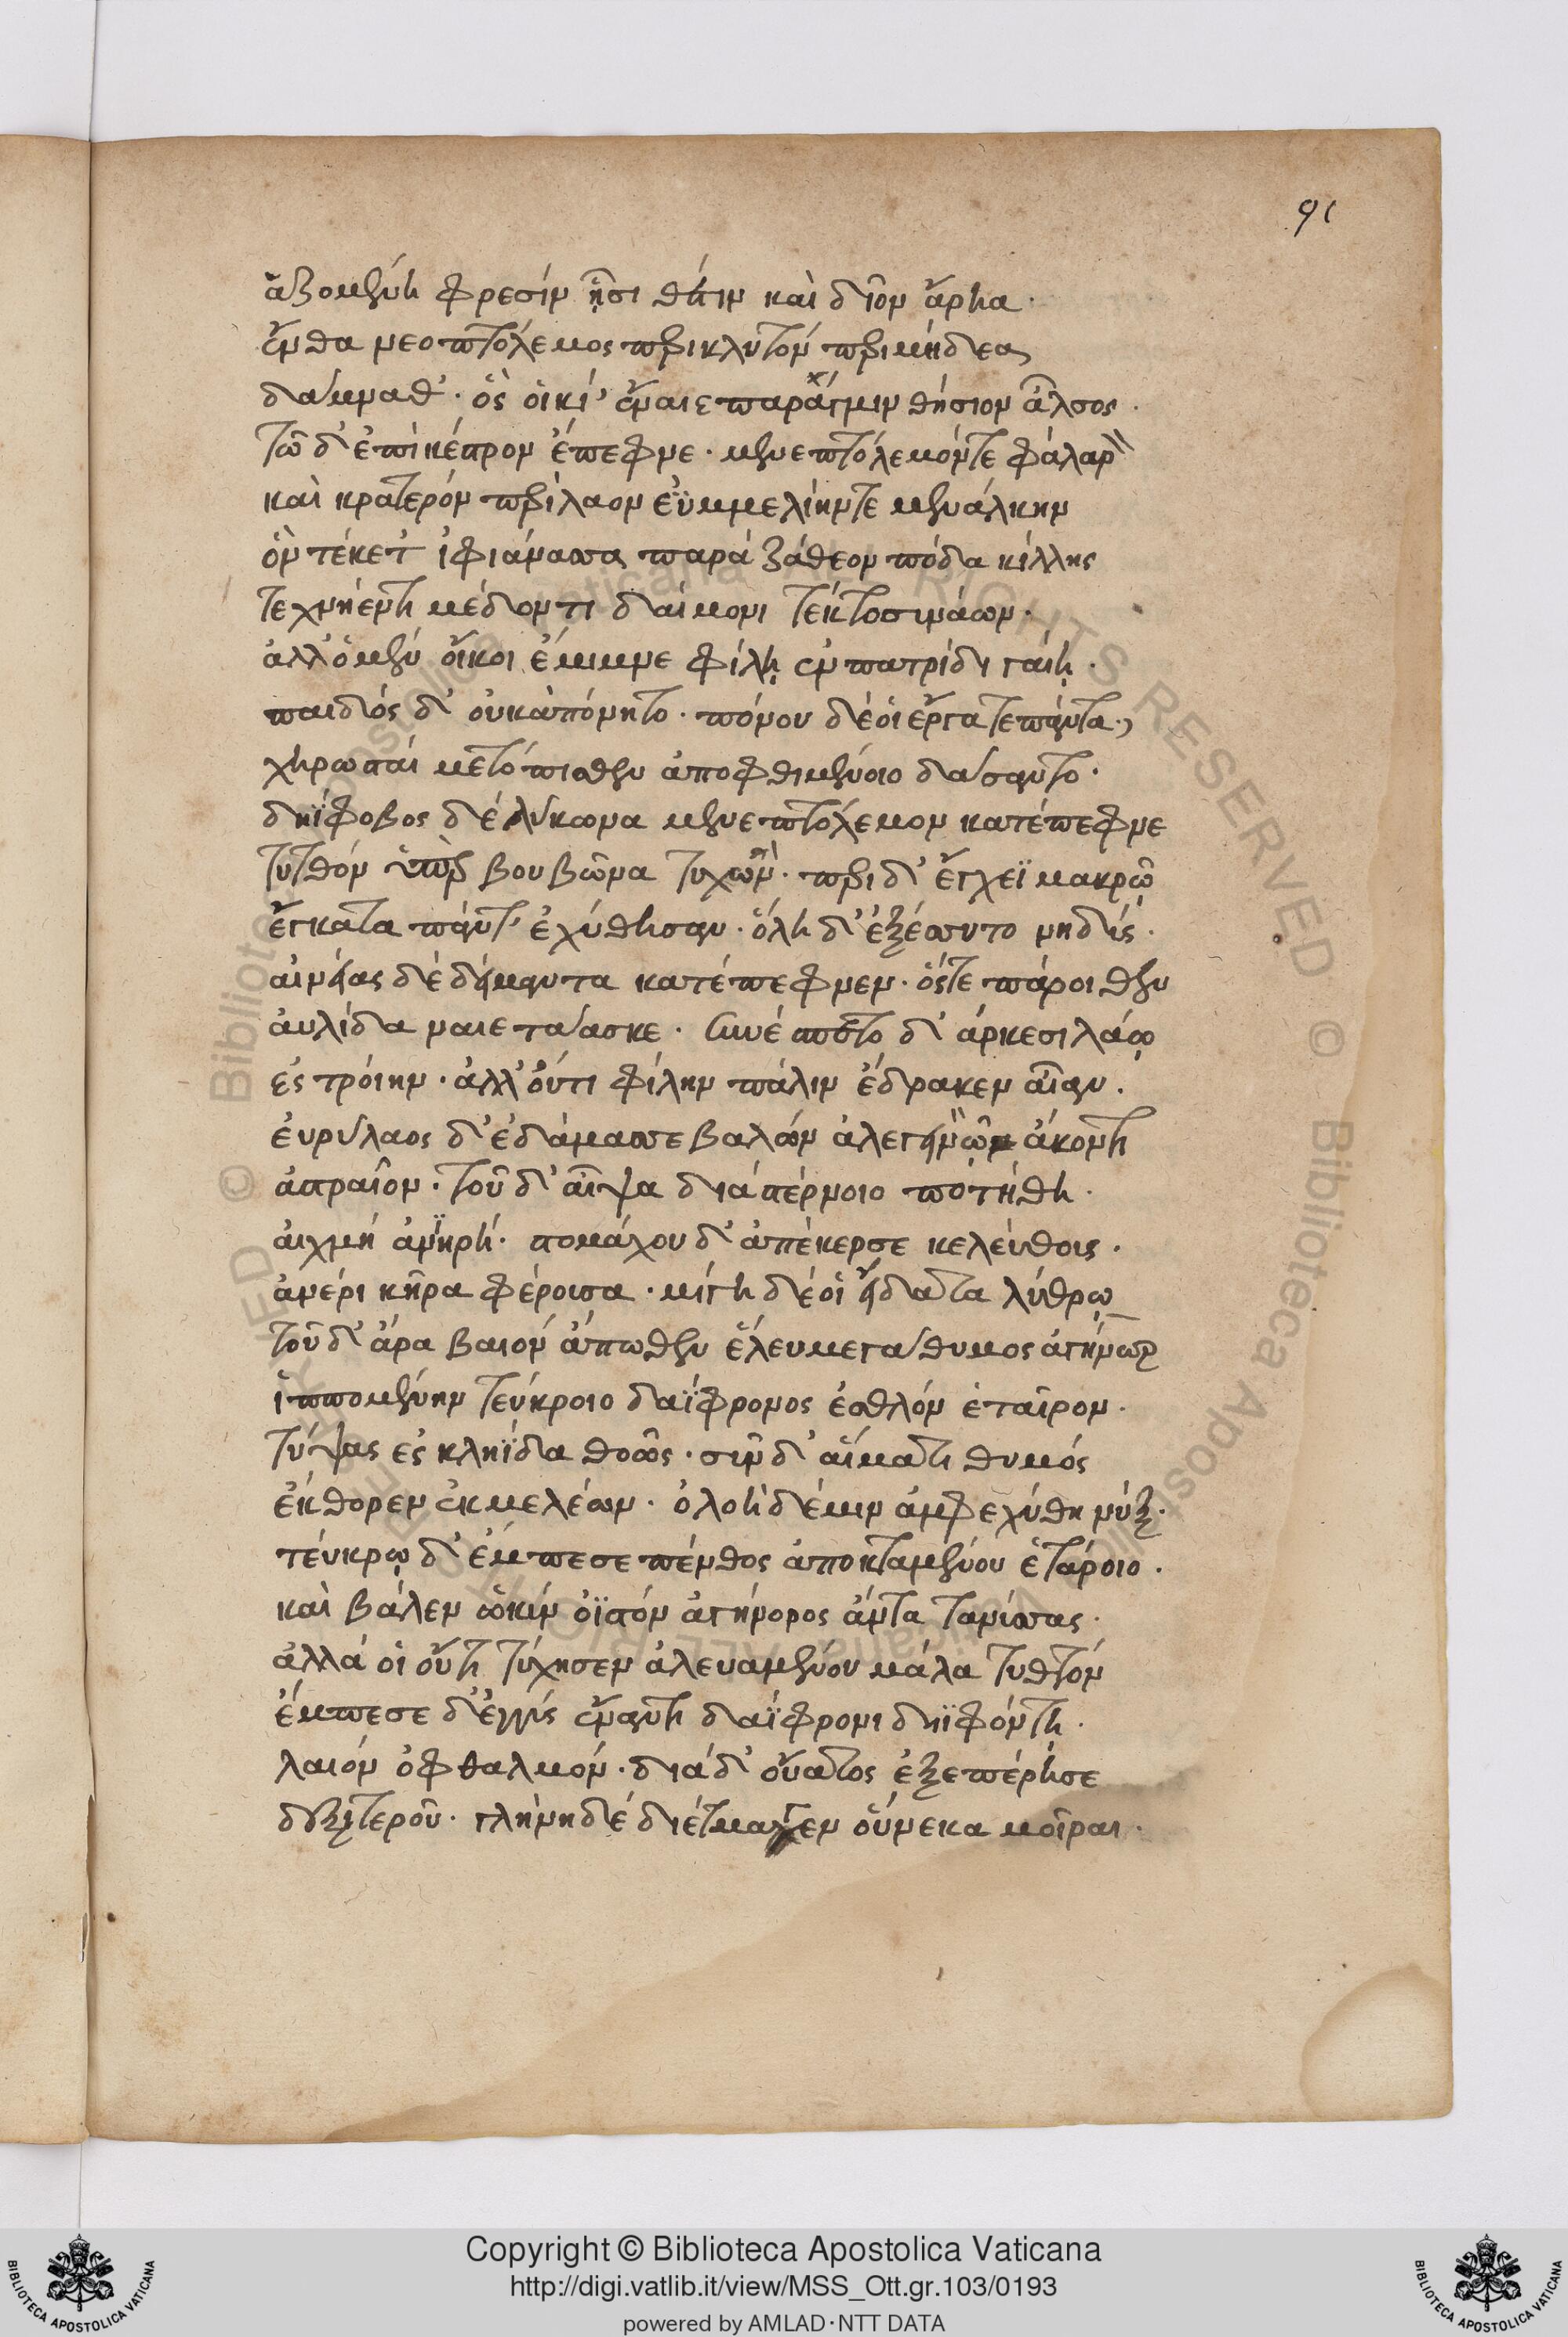 91
ἁζομένη φρεσὶν ᾗσι θέτιν καὶ δῖον ἄρηα·
ἔνθα νεοπτόλεμος περικλυτὸν περιμήδεα
δάμναθ'· ὃς οἰκί' ἔναιε παράγνιν θήσιον ἄλσος·
τῶ δ' ἐπὶ κέστρον ἔπεφνε· μενεπτόλεμόν τε φάλαρ
καὶ κρατερὸν περίλαον ἐϋμμελίην τε μενάλκην
ὃν τέκετ' ἰφιάνασσα παρὰ ζάθεον πόδα κίλλης
τεχνήεντι μέδοντι δαίμονι τεκτοσινάων·
ἀλλ' ὁ μὲν οἴκοι ἔμιμνε φίλῃ ἐν πατρίδι γαίῃ·
παιδὸς δ' οὐκ ἀπόνητο· πόνου δέ οἱ ἔργα τε πάντα·
χηρωσταὶ μετόπισθεν ἀποφθιμένοιο δάσαντο·
δηΐφοβος δὲ λύκωνα μενεπτόλεμον κατέπεφνε
τυτθὸν ὑπὲρ βουβῶνα τυχών· περὶ δ' ἔγχεϊ μακρῷ
ἔγκατα πάντ' ἐχύθησαν· ὅλη δ' ἐξέσσυτο νηδύς·
αἰνείας δὲ δύμαντα κατέπεφνεν· ὅς τε πάροιθεν
αὐλίδα ναιετάασκε· συνέσπετο δ' ἀρκεσιλάῳ
ἐς τροίην· ἀλλ' οὔτι φίλην πάλιν ἔδρακεν αἶαν·
εὐρύλαος δ' ἐδάμασσε βαλὼν ἀλεγεινὸν ἄκοντι
ἀστραῖον· τοῦ δ' αἶψα διὰ στέρνοιο ποτήθη·
αἰχμὴ ἀνιηρή· στομάχου δ' ἀπέκερσε κελεύθοις·
ἀνέρι κῆρα φέρουσα· μίγη δέ οἱ εἴδατα λύθρῳ
τοῦ δ' ἄρα βαιὸν ἄπωθεν ἕλεν μεγάθυμος ἀγήνωρ
ἱππομένην τεύκροιο δαΐφρονος ἐσθλὸν ἑταῖρον·
τύψας ἐς κληῗδα θοῶς· σὺν δ' αἵματι θυμὸς
ἔκθορεν ἐκ μελέων· ὀλοὴ δέ μιν ἀμφεχύθη νύξ·
τεύκρῳ δ' ἔμπεσε πένθος ἀποκταμένου ἑτάροιο·
καὶ βάλεν ὠκὺν ὀϊστὸν ἀγήνορος ἄντα τανύσσας·
ἀλλά οἱ οὔτι τύχησεν ἀλευαμένου μάλα τυτθὸν
ἔμπεσε δ' ἐγγὺς ἐόντι δαΐφρονι δηϊφόντῃ·
λαιὸν ὀφθαλμόν· διὰ δ' οὔατος ἐξεπέρησε
δεξιτεροῦ· γλήνη δὲ διέτμαγεν οὕνεκα μοῖραι·
Copyright © Biblioteca Apostolica Vaticana
http://digi.vatlib.it/view/MSS_Ott.gr.103/0193
powered by AMLAD·NTT DATA